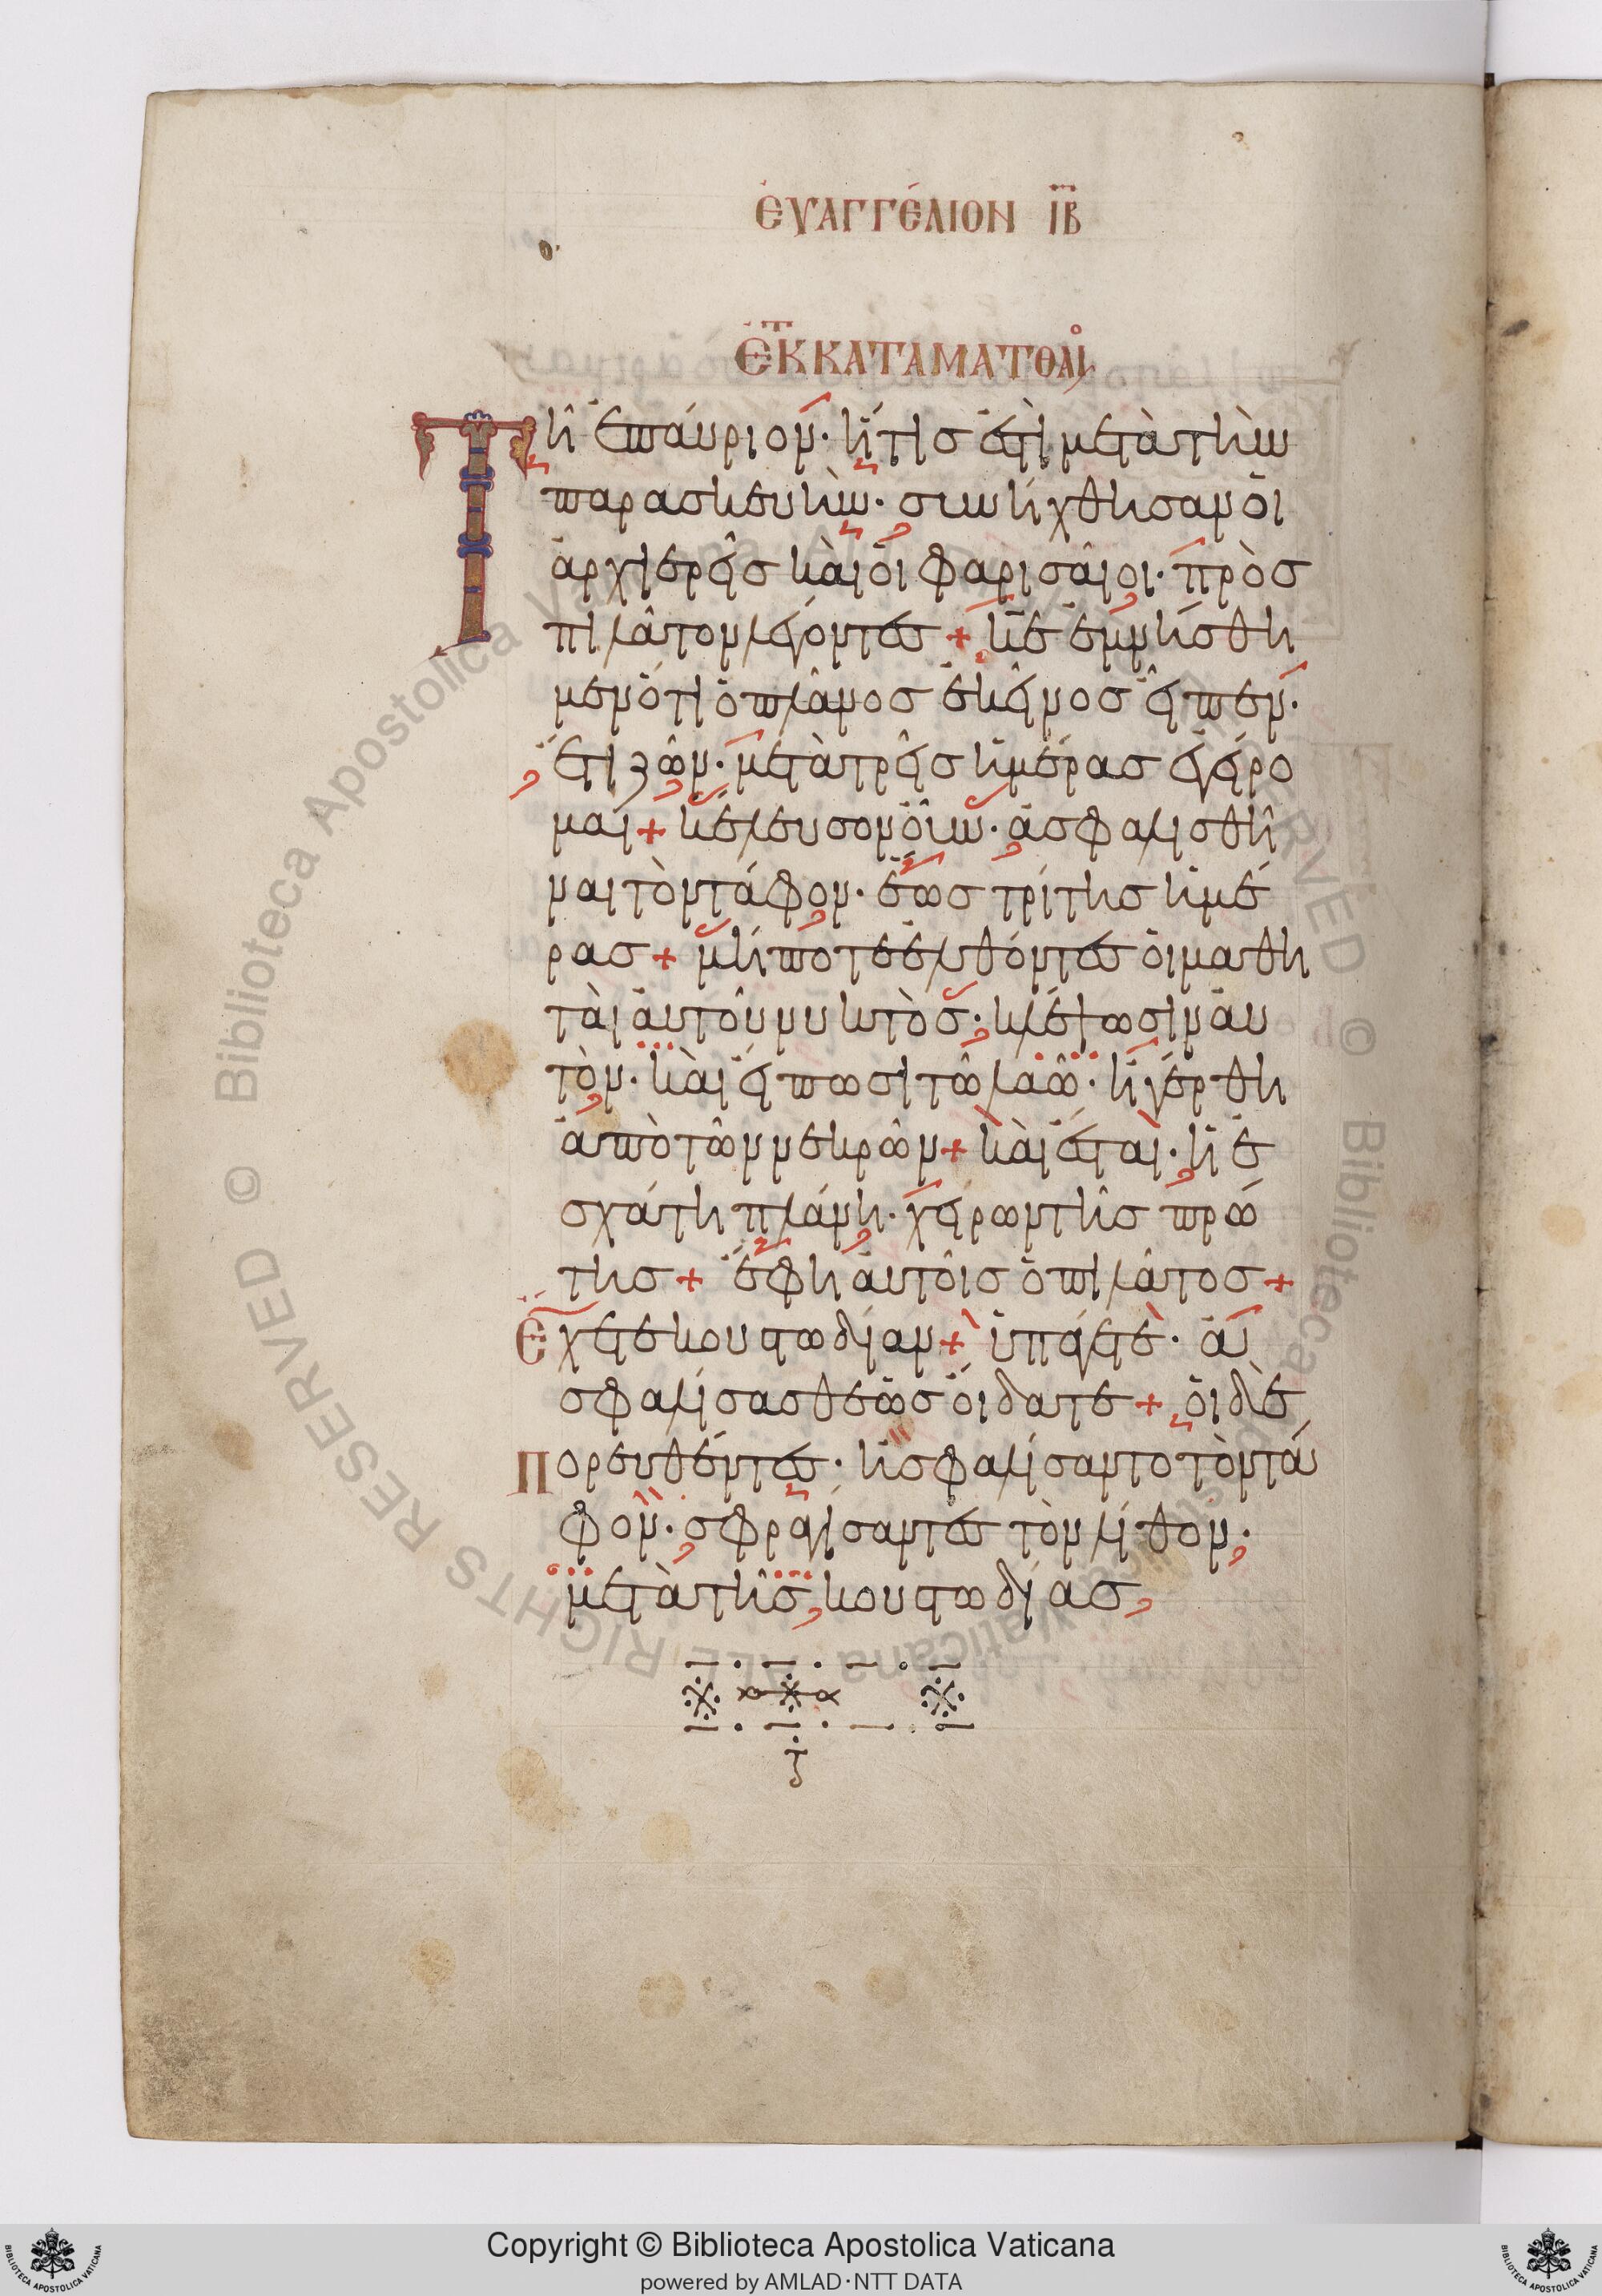 ΕΥΑΓΓΈΛΙΟΝ ΙΒ
ΕΚ ΚΑΤΑ ΜΑΤΘΑΙ
Τῆ ἐπάυριον· ἥτις ἐστὶ μετὰ τὴν
παρασκευὴν· συνήχθησαν ὁι
ἀρχιερεῖς κὰι ὁι φαρισᾶιοι· πρὸς
πιλᾶτον λέγοντες + κε ἐμνήσθη
μεν ὅτι ὁ πλᾶνος ἐκεῖνος εἶπεν·
ἔτι ζῶν· μετὰ τρεῖς ἡμέρας ἐγείρο
μαι + κέλευσον ὁῦν· ἀσφαλισθῆ
ναι τὸν τάφον· ἕως τρίτης ἡμέ
ρας + μήποτε ἐλθόντες ὁι μαθη
τὰι ἀυτοῦ νυκτὸς· κλέψωσιν ἀυ
τὸν· κὰι εἴπωσι τῶ λαῶ· ἠγέρθη
ἀπὸ τῶν νεκρῶν + κὰι ἔσται· ἡ ἐ
σχάτη πλάνη· χείρων τῆς πρώ
της + ἔφη ἀυτοῖς ὁ πιλᾶτος +
Ἔχετε κουστωδίαν + ὑπάγετε· ἀ
σφαλίσασθε ὡς ὄιδατε + ὁι δὲ
Πορευθέντες· ἠσφαλίσαντο τὸν τά
φον· σφραγίσαντες τὸν λίθον·
μετὰ τῆς κουστωδίας
Copyright © Biblioteca Apostolica Vaticana
powered by AMLAD·NTT DATA
© Biblioteca Apostolica Vaticana ALL RIGHTS RESERVED
BIBLIOTECA APOSTOLICA VATICANA
BIBLIOTECA APOSTOLICA VATICANA